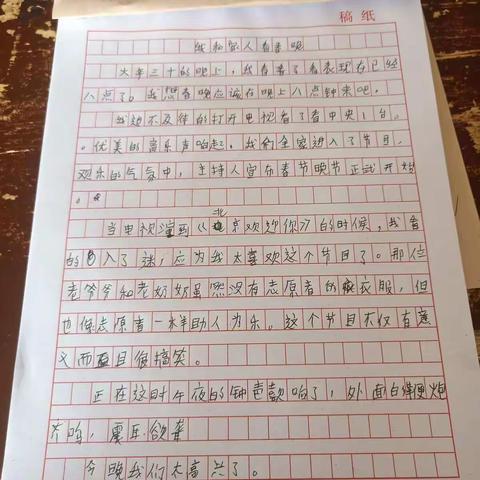 稿纸
我和家人看春晚
大年三十的晚上，我看看了看表现在已经
八点了。我想春晚应该在晚上八点钟来吧，
我迫不及待的打开电视看了看中央1台。
。优美的音乐声响起，我们全家进入了节目，
欢乐的气氛中，主持人宣布春节晚节正式开始
。
当电视演到《北京欢迎你》的时候，我看
的入了迷，应为我太喜欢这个节目了。那位
老爷爷和老奶奶虽然没有志愿者的衣服，但
也像志愿者一样助人为乐。这个节目不仅有意
义而且很搞笑。
正在这时午夜的钟声敲响了，外面的鞭炮
齐鸣，震耳欲聋
今晚我们太高兴了。